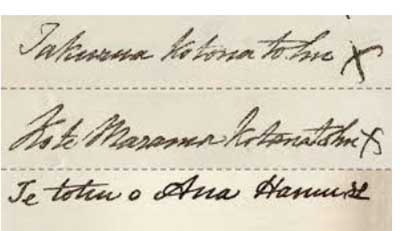 Takurua Ko tona tohu x
Ko te Marama Ko tona tohu x
Te tohu o Ana Hamu